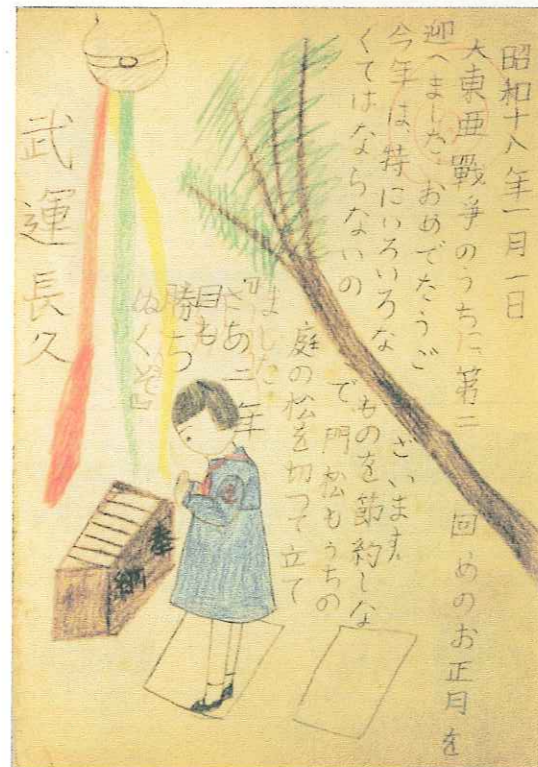 昭和十八年一月一日
大東亜戰争のうちに第二回めのお正月を
迎へました。おめでたうございます
今年は、特にいろいろなものを節約しな
くてはならないので、門松もうちの
庭の松を切つて立て
ました。
『さあ二年
目も
勝ち
ぬくぞ』
武運長久
奉納